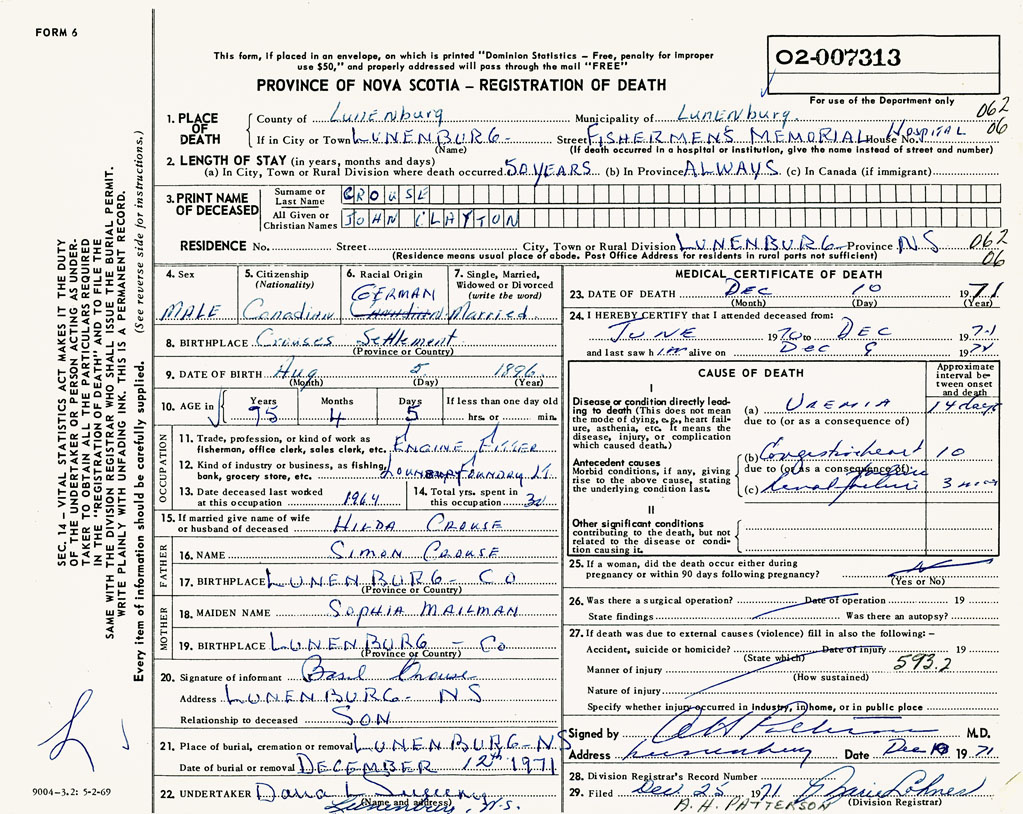 FORM 6
This form, if placed in an envelope, on which is printed "Dominion Statistics – Free, penalty for improper
use $50," and properly addressed will pass through the mail "FREE"
02-007313
PROVINCE OF NOVA SCOTIA – REGISTRATION OF DEATH
For use of the Department only
1. PLACE OF DEATH
County of Lunenburg Municipality of Lunenburg. 062
If in City or Town LUNENBURG- Street FISHERMENS MEMORIAL House No. HOSPITAL 06
(Name) (If death occurred in a hospital or institution, give the name instead of street and number)
2. LENGTH OF STAY (in years, months and days)
(a) In City, Town or Rural Division where death occurred 50 YEARS (b) In Province ALWAYS (c) In Canada (if immigrant)
3. PRINT NAME OF DECEASED
Surname or Last Name CROUSE
All Given or Christian Names JOHN CLAYTON
RESIDENCE No. Street City, Town or Rural Division LUNENBURG- Province NS 062
(Residence means usual place of abode. Post Office Address for residents in rural parts not sufficient) 06
4. Sex MALE
5. Citizenship (Nationality) Canadian
6. Racial Origin GERMAN
7. Single, Married, Widowed or Divorced (write the word) Married.
8. BIRTHPLACE Crouses Settlement
(Province or Country)
9. DATE OF BIRTH Aug 5 1896
(Month) (Day) (Year)
10. AGE in Years 75 Months 4 Days 5 If less than one day old hrs. or min.
OCCUPATION
11. Trade, profession, or kind of work as fisherman, office clerk, sales clerk, etc. ENGINE FITTER
12. Kind of industry or business, as fishing, bank, grocery store, etc. Foundry
13. Date deceased last worked at this occupation 1964
14. Total yrs. spent in this occupation 30
15. If married give name of wife or husband of deceased HILDA CROUSE
FATHER
16. NAME SIMON CROUSE
17. BIRTHPLACE LUNENBURG- CO
(Province or Country)
MOTHER
18. MAIDEN NAME SOPHIA MAILMAN
19. BIRTHPLACE LUNENBURG - Co
(Province or Country)
20. Signature of informant Basil Crouse
Address LUNENBURG- NS
Relationship to deceased SON
21. Place of burial, cremation or removal LUNENBURG-NS
Date of burial or removal DECEMBER 12th 1971
22. UNDERTAKER Dana L Sweeny
(Name and address) Lunenburg, N.S.
MEDICAL CERTIFICATE OF DEATH
23. DATE OF DEATH DEC 10 1971
(Month) (Day) (Year)
24. I HEREBY CERTIFY that I attended deceased from:
JUNE 1970 to DEC 1971
and last saw him alive on Dec 9 1971
CAUSE OF DEATH
Approximate interval between onset and death
I
Disease or condition directly leading to death (This does not mean the mode of dying, e.g., heart failure, asthenia, etc. It means the disease, injury, or complication which caused death.)
(a) UREMIA 14 days
due to (or as a consequence of)
Antecedent causes
Morbid conditions, if any, giving rise to the above cause, stating the underlying condition last.
(b) Congestive heart failure 10
due to (or as a consequence of)
(c) renal failure 3
II
Other significant conditions contributing to the death, but not related to the disease or condition causing it.
25. If a woman, did the death occur either during pregnancy or within 90 days following pregnancy?
(Yes or No)
26. Was there a surgical operation? Date of operation 19
State findings Was there an autopsy?
27. If death was due to external causes (violence) fill in also the following: –
Accident, suicide or homicide? Date of injury 19
(State which) 593.2
Manner of injury
(How sustained)
Nature of injury
Specify whether injury occurred in industry, in home, or in public place
Signed by A H Patterson M.D.
Address Lunenburg Date Dec 10 1971
28. Division Registrar's Record Number
29. Filed Dec 25 1971 Lohnes
A.H. PATTERSON (Division Registrar)
SEC. 14 – VITAL STATISTICS ACT MAKES IT THE DUTY
OF THE UNDERTAKER OR PERSON ACTING AS UNDERTAKER TO OBTAIN ALL THE PARTICULARS REQUIRED
IN THE "REGISTRATION OF DEATH" AND TO FILE THE
SAME WITH THE DIVISION REGISTRAR WHO SHALL ISSUE THE BURIAL PERMIT.
WRITE PLAINLY WITH UNFADING INK. THIS IS A PERMANENT RECORD.
Every item of information should be carefully supplied. (See reverse side for instructions.)
9004-3.2: 5-2-69